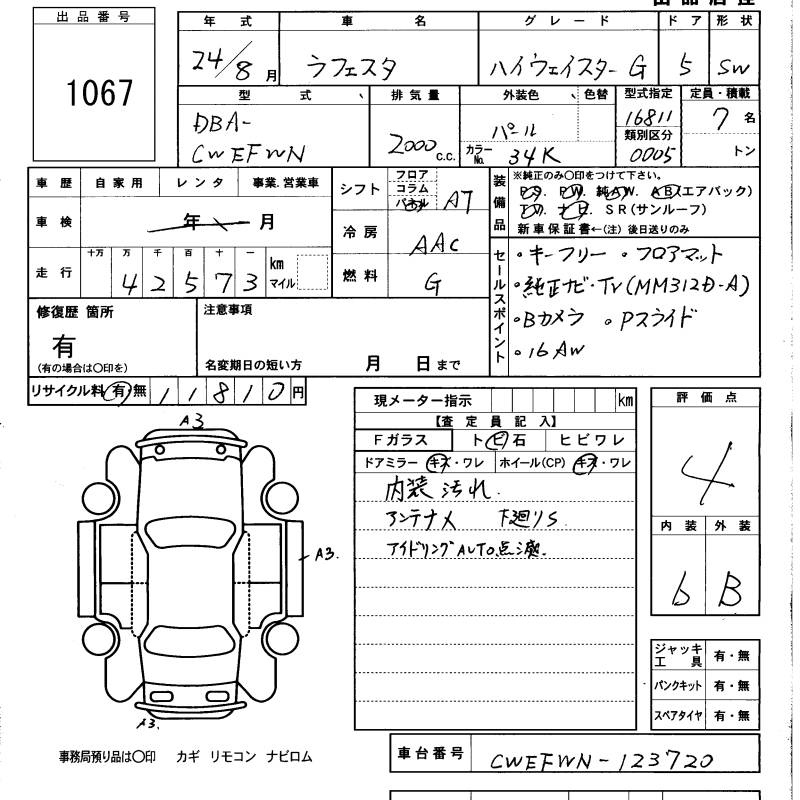 出品番号
1067
年式 車名 グレード ドア 形状
24/8月 ラフェスタ ハイウェイスター G 5 SW
型式 排気量 外装色 色替 型式指定 定員・積載
DBA- CWEFWN 2000 c.c. パール カラーNo. 34K 16811 類別区分 0005 7名 トン
車歴 自家用 レンタ 事業.営業車
車検 年 月
走行 十万 万 千 百 十 一 km マイル
4 2 5 7 3
シフト フロア コラム パネル AT
冷房 AAC
燃料 G
装備品
※純正のみ〇印をつけて下さい。
P.S. P.W. 純AW. AB(エアバック)
TV. ナビ. SR(サンルーフ)
新車保証書←(注) 後日送りのみ
セールスポイント
・キーフリー ・フロアマット
・純正ナビ・TV(MM312D-A)
・Bカメラ ・Pスライド
・16AW
修復歴 箇所
有
(有の場合は〇印を)
注意事項
名変期日の短い方 月 日まで
リサイクル料 有 無 11810円
現メーター指示 km
【査定員記入】
Fガラス トビ石 ヒビワレ
ドアミラー キズ・ワレ ホイール(CP) キズ・ワレ
内装 汚れ.
アンテナX 下廻りS
アイドリングAUTO点滅.
評価点
4
内装 外装
b B
ジャッキ工具 有・無
パンクキット 有・無
スペアタイヤ 有・無
A3
A3.
A3.
事務局預り品は〇印 カギ リモコン ナビロム
車台番号 CWEFWN-123720